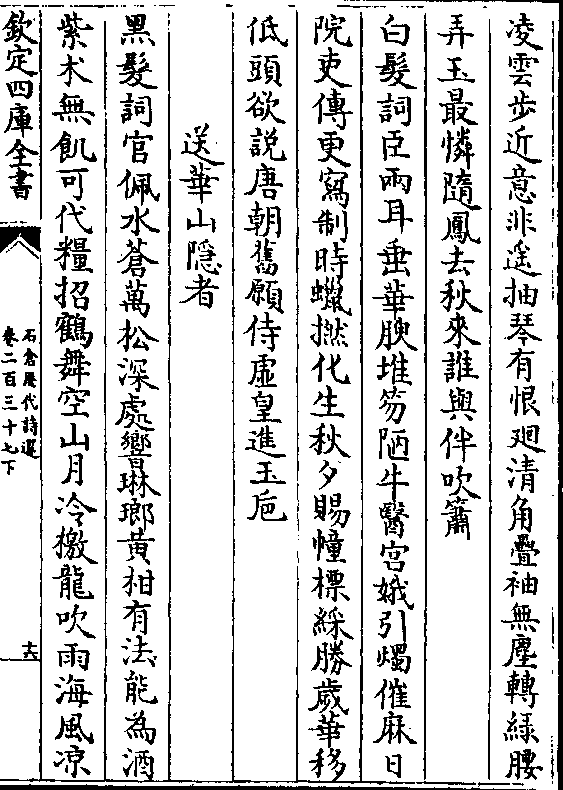 凌雲步近意非遙抽琴有恨廻清角疊袖無塵轉綠腰
弄玉最憐隨鳳去秋來誰與伴吹簫
白髮詞臣兩耳垂華腴堆笏陋牛醫宮娥引燭催麻日
院吏傳更寫制時蠟撚化生秋夕賜幢標綵勝歲華移
低頭欲說唐朝舊願侍虛皇進玉巵
送華山隱者
黑髮詞官佩水蒼萬松深處響琳瑯黄柑有法能為酒
紫术無飢可代糧招鶴舞空山月冷檄龍吹雨海風凉
欽定四庫全書
石倉歷代詩選
卷二百三十七下
十六